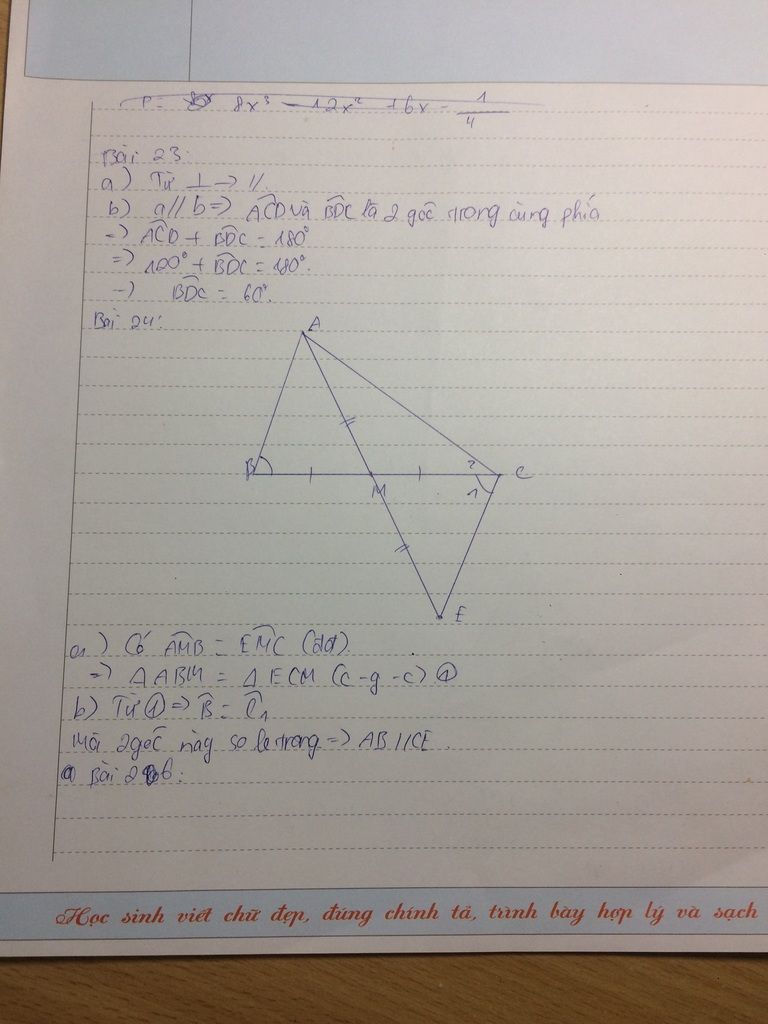 P = 8x³ - 12x² + 6x - 1/4
Bài 23:
a) Từ ⊥ → //.
b) a // b => ACD và BDC là 2 góc trong cùng phía
=> ACD + BDC = 180°
=> 120° + BDC = 180°.
→ BDC = 60°.
Bài 24:
A
B
M
2
1
C
E
a) Có AMB = EMC (đđ).
=> Δ ABM = Δ ECM (c-g-c) ①
b) Từ ① => B = C₁
Mà 2 góc này so le trong => AB // CE.
Bài 26:
Học sinh viết chữ đẹp, đúng chính tả, trình bày hợp lý và sạch